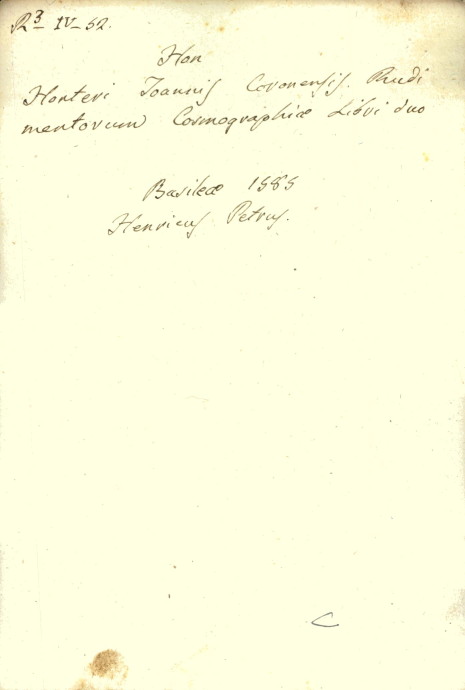 R3 IV_ 52.
Hon
Honteri Joannis Coronensis. Rudi
mentorum Cosmographiæ Libri duo
Basileæ 1585
Henricus Petrus.
C